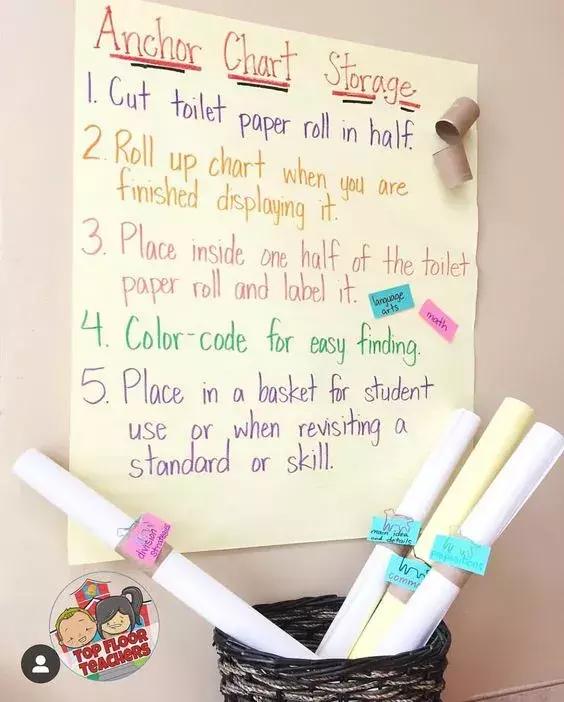 Anchor Chart Storage
1. Cut toilet paper roll in half.
2. Roll up chart when you are
finished displaying it.
3. Place inside one half of the toilet
paper roll and label it.
language
arts
math
4. Color-code for easy finding.
5. Place in a basket for student
use or when revisiting a
standard or skill.
division
strategies
main idea
and details
prepositions
TOP FLOOR
TEACHERS